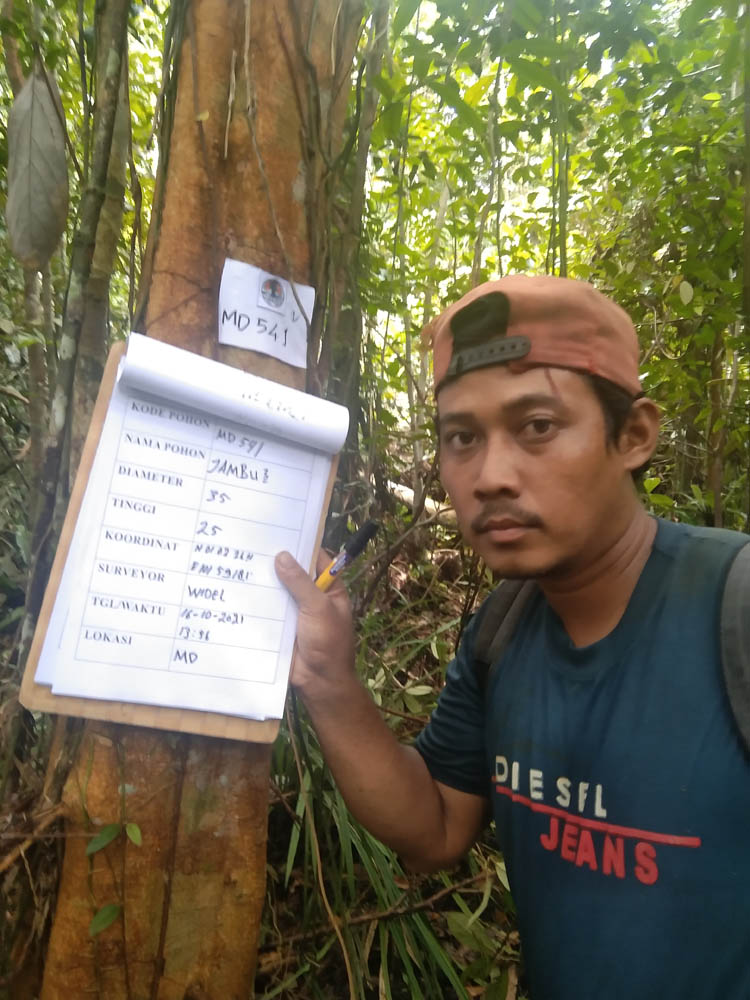 MD 541
KODE POHON MD 541
NAMA POHON JAMBU 2
DIAMETER 35
TINGGI 25
KOORDINAT
SURVEYOR WIDEL
TGL/WAKTU 16-10-2021
13:46
LOKASI MD
DIESEL
JEANS